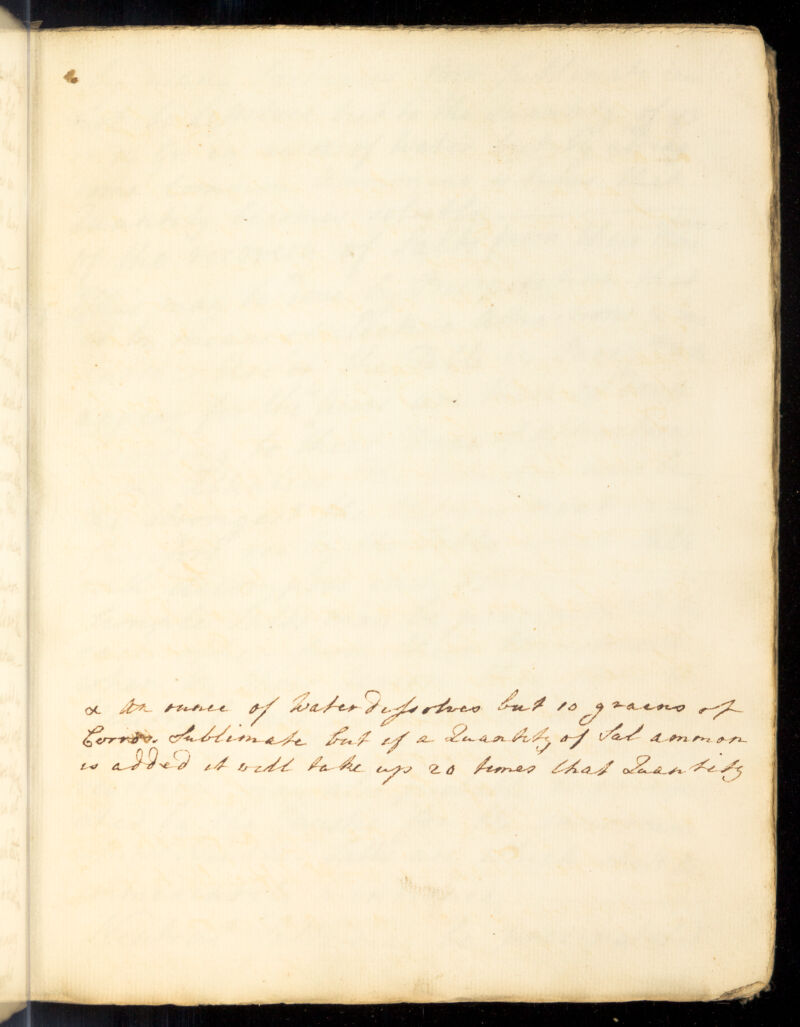 x An ounce of Water dissolves but 10 grains of
Corros. Sublimate but if a Quantity of Sal ammon
is added it will take up 20 times that Quantity